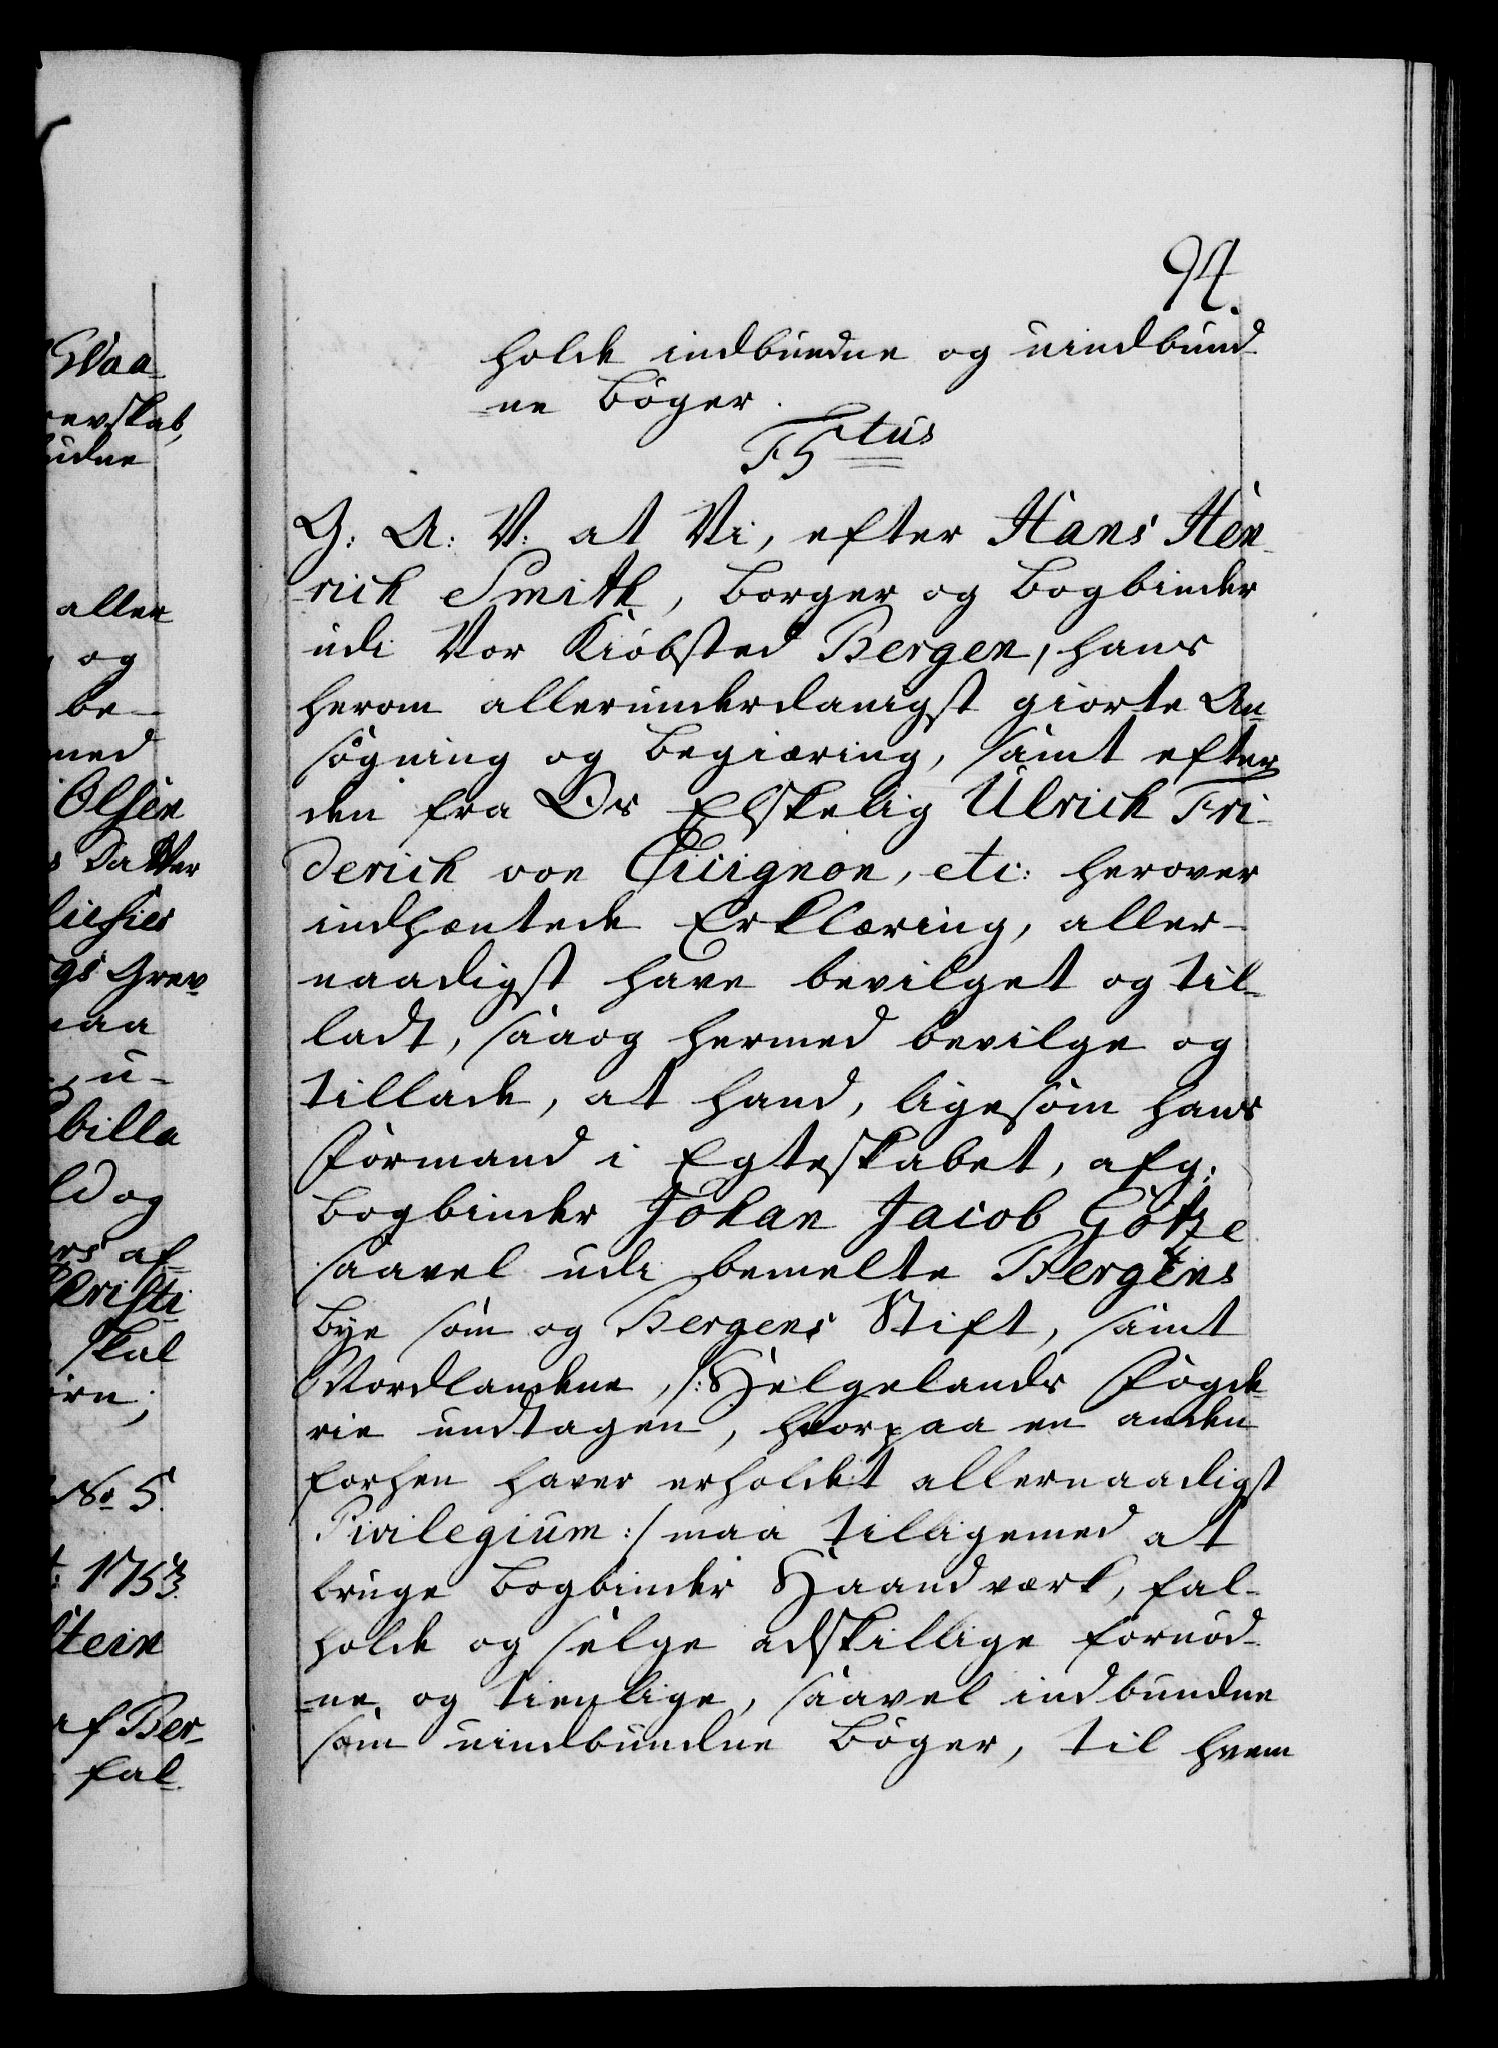 Waa-
revskab,
udne
aller
og
be-
med
Olsen
s Datter
gs Grev-
maa
u-
billa
ld og
ers af-
Christi
skal
örn;
No 5.
1753.
stein
af Ber-
fal-
94.
holde indbundne og uindbund-
-ne Bøger.
F5tus
G: A: V: at Vi, efter Hans Hen-
rich Smith, Borger og Bogbinder
udi Vor Kiöbsted Bergen, hans
herom allerunderdanigst giorte An-
søgning og Begiæring, samt efter
den fra Os Elskelig Ulrich Fri-
derich von Cicignon, etc: herover
indhæntede Erklæring, aller-
naadigst have bevilget og til-
ladt, saa og hermed bevilge og
tillade, at hand, ligesom hans
Formand i Egteskabet, afg:
Bogbinder Johan Jacob Götze
saavel udi bemelte Bergens
Bye som og Bergens Stift, samt
Nordlandene, /: Helgelands Fogde-
rie undtagen, hvorpaa en anden
forhen haver erholdet allernaadigst
Privilegium :/ maa tilligemed at
bruge Bogbinder Haandværk, fal-
holde og selge adskillige fornöd-
-ne og tienlige, saavel indbundne
som uindbundne Bøger, til hvem